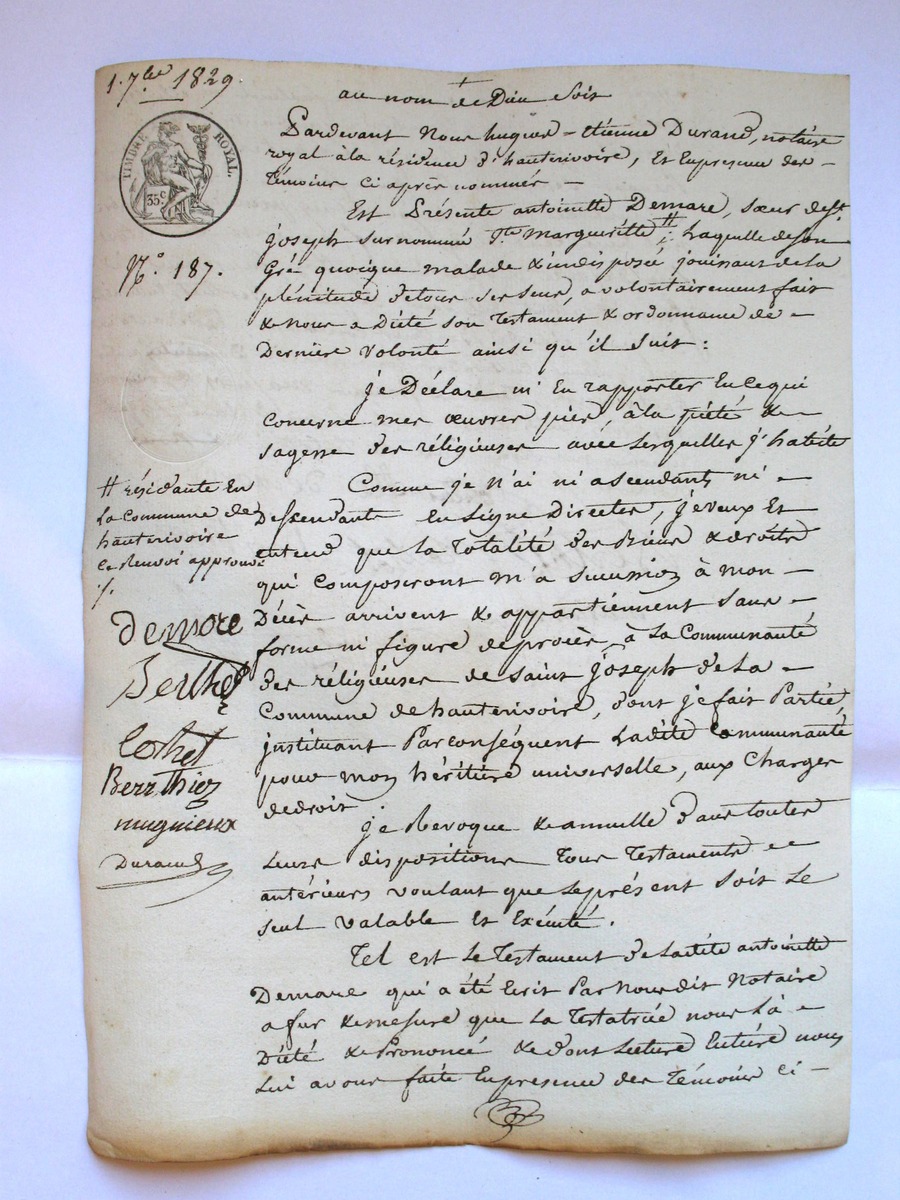 1. 7bre 1829
au nom de Dieu soit
TIMBRE ROYAL.
35c
N.o 187.
Pardevant Nous hugues-étienne Durand, notaire
royal à la résidence d'hauterivoire, Et En presence des
témoins ci après nommés
Est Présente antoinette Demare, sœur de St
joseph surnommée Ste Margueritte //, Laquelle de son
Gré quoique malade & indisposée jouissant de la
plénitude de tous ses sens, a volontairement fait
& nous a Dicté son Testament & ordonnance de
Dernière volonté ainsi qu'il suit :
je Déclare m'En rapporter En ce qui
concerne mes œuvres pies, à la piété &
sagesse des réligieuses avec Lesquelles j'habite
Comme je n'ai ni ascendants ni
Dessendants En Ligne Directes, je veux Et
Entend que La Totalité des Biens & droits
qui composeront m'a succession à mon
Décès arrivent & appartiennent sans
forme ni figure de procès, à La Communauté
des réligieuses de saint joseph de La
Commune de hauterivoire, dont je fait Partie,
jnstituant Par conséquent Ladite Communauté
pour mon héritière universelle, aux Charges
de droit.
je Revoque & annulle Dans toutes
Leurs dispositions Tous Testaments
antérieurs voulant que Le présent soit Le
seul valable Et Exécuté.
Tel est Le Testament de Ladite antoinette
Demare qui a été Ecrit Par Nous dit Notaire
a fur & mesure que La Testatrice nous L'à
Dicté & Prononcé & dont Lecture Entière nous
Lui avons faite En presence des Témoins ci
// résidante En
La Commune de
hauterivoire
Ce Renvoi approuvé
Demare
Berthet
Cohet
Berthier
mugnieux
Durand